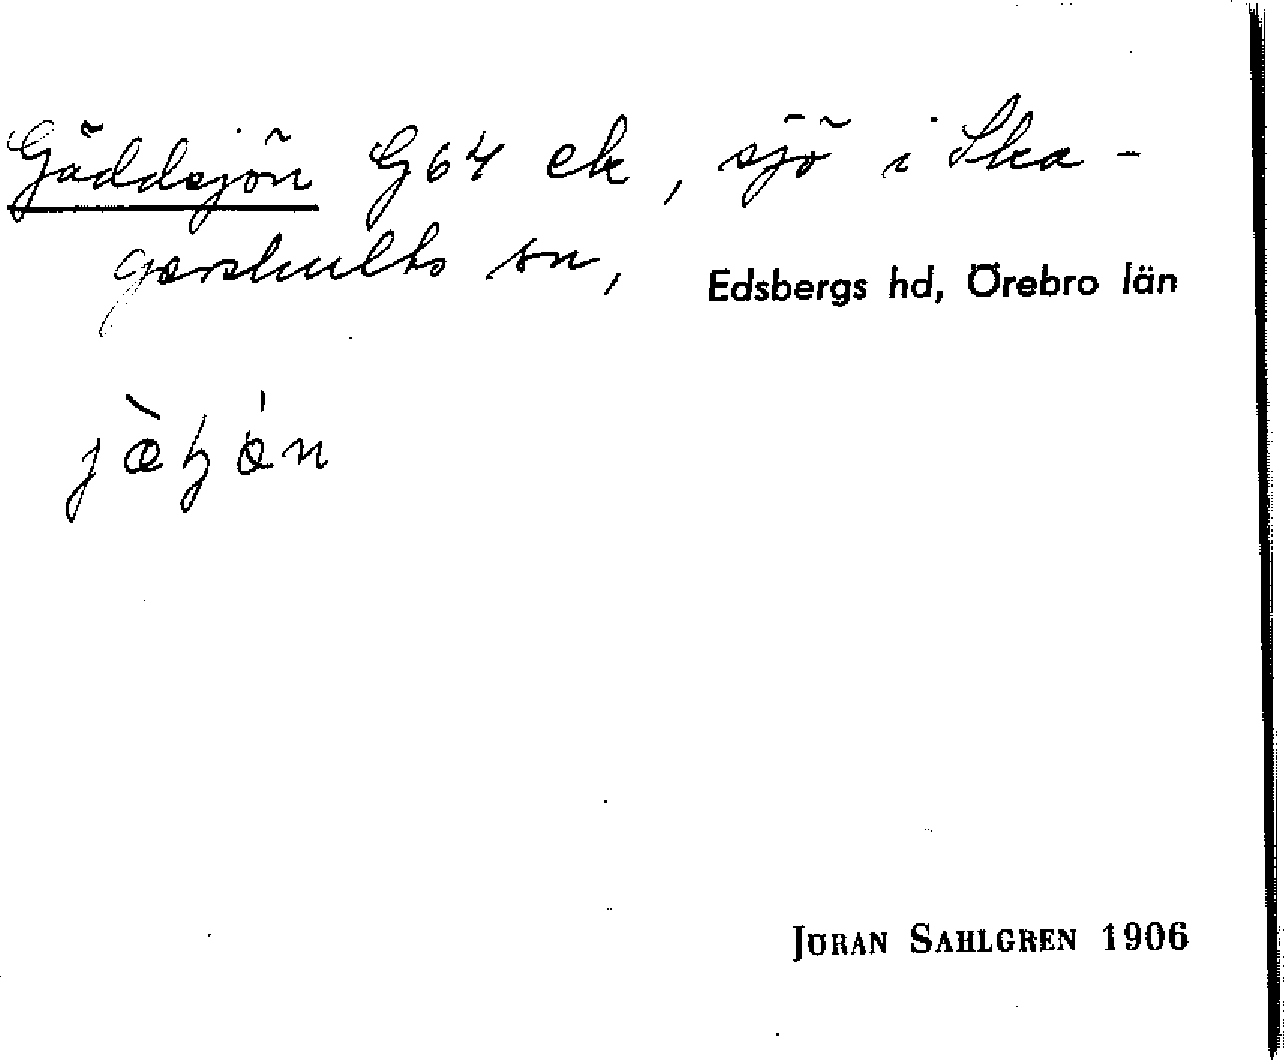 Gäddsjön G64 ek, sjö i Ska-
gershults sn, Edsbergs hd, Örebro län
JÖRAN SAHLGREN 1906